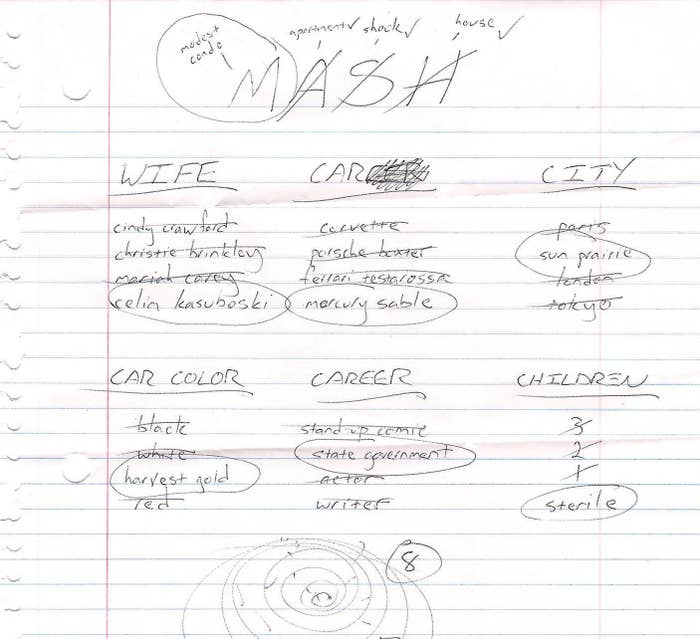 modest apartment ✓ shack ✓ house ✓
condo
MASH
WIFE CAR CITY
cindy crawford corvette paris
christie brinkley porsche boxter sun prairie
mariah carey ferrari testarossa london
celia kasuboski mercury sable tokyo
CAR COLOR CAREER CHILDREN
black stand-up comic 3
white state government 2
harvest gold actor 1
red writer sterile
8